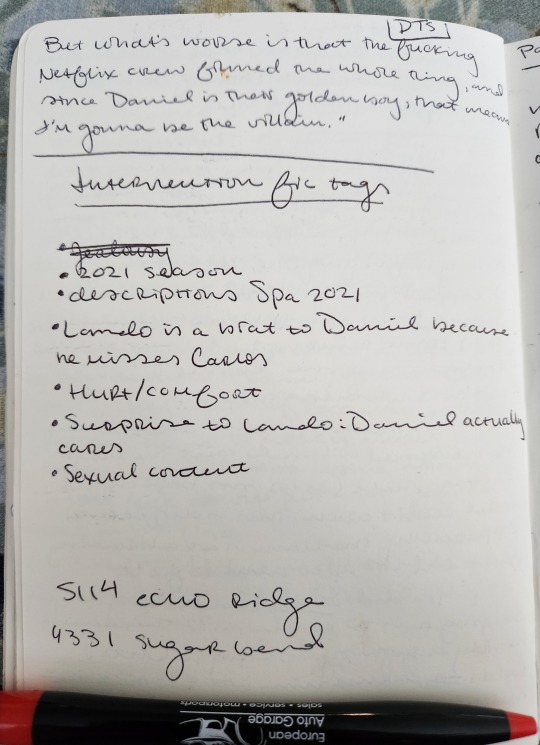 DTS
But what's worse is that the fucking
Netflix crew filmed the whole thing, and
since Daniel is their golden boy, that means
I'm gonna be the villain."
Intervention fic tags
• Jealousy
• 2021 season
• descriptions Spa 2021
• Lando is a brat to Daniel because
he misses Carlos
• Hurt/comfort
• Surprise to Lando: Daniel actually
cares
• Sexual content
5114 echo Ridge
4331 sugar bend
European
Auto Garage
sales • service • motorsports